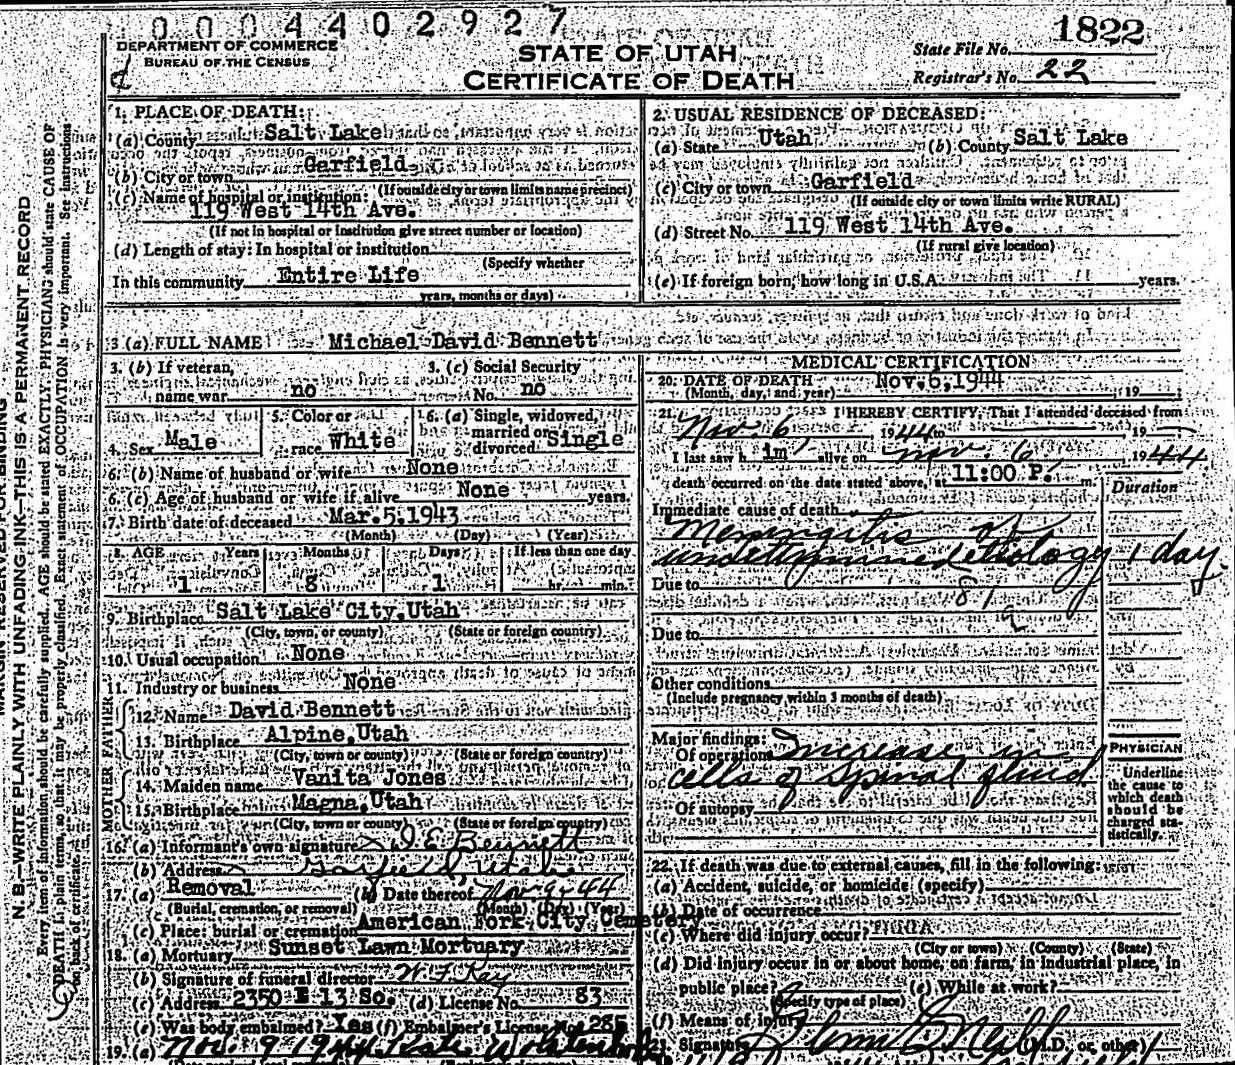 0004402927
DEPARTMENT OF COMMERCE
BUREAU OF THE CENSUS
STATE OF UTAH
CERTIFICATE OF DEATH
State File No. 1822
Registrar's No. 22
MARGIN RESERVED FOR BINDING
N. B.—WRITE PLAINLY WITH UNFADING INK—THIS IS A PERMANENT RECORD
Every item of information should be carefully supplied. AGE should be stated EXACTLY. PHYSICIANS should state CAUSE OF
DEATH in plain terms, so that it may be properly classified. Exact statement of OCCUPATION is very important. See instructions
on back of certificate.
1. PLACE OF DEATH:
(a) County Salt Lake
(b) City or town Garfield
(If outside city or town limits name precinct)
(c) Name of hospital or institution:
119 West 14th Ave.
(If not in hospital or institution give street number or location)
(d) Length of stay: In hospital or institution
(Specify whether
In this community Entire Life
years, months or days)
2. USUAL RESIDENCE OF DECEASED:
(a) State Utah (b) County Salt Lake
(c) City or town Garfield
(If outside city or town limits write RURAL)
(d) Street No. 119 West 14th Ave.
(If rural give location)
(e) If foreign born, how long in U.S.A. years.
3 (a) FULL NAME Michael David Bennett
3. (b) If veteran, name war no
3. (c) Social Security No. no
4. Sex Male
5. Color or race White
6. (a) Single, widowed, married or divorced Single
6. (b) Name of husband or wife None
6. (c) Age of husband or wife if alive None years.
7. Birth date of deceased Mar.5,1943
(Month) (Day) (Year)
8. AGE Years Months Days If less than one day
1 8 1 hr. min.
9. Birthplace Salt Lake City,Utah
(City, town, or county) (State or foreign country)
10. Usual occupation None
11. Industry or business None
FATHER
12. Name David Bennett
13. Birthplace Alpine,Utah
(City, town or county) (State or foreign country)
MOTHER
14. Maiden name Vanita Jones
15. Birthplace Magna,Utah
(City, town or county) (State or foreign country)
16. (a) Informant's own signature D E Bennett
(b) Address Garfield, Utah
17. (a) Removal (b) Date thereof Nov-9-44
(Burial, cremation, or removal) (Month) (Day) (Year)
(c) Place: burial or cremation American Fork City Cemetery
18. (a) Mortuary Sunset Lawn Mortuary
(b) Signature of funeral director
(c) Address 2350 E 13 So. (d) License No. 83
(e) Was body embalmed? Yes (f) Embalmer's License No. 285
19. (a) Nov. 9 1944
MEDICAL CERTIFICATION
20. DATE OF DEATH Nov.6,1944
(Month, day, and year) 19
21. I HEREBY CERTIFY, That I attended deceased from
Nov. 6, 1944 to 19
I last saw h im alive on Nov. 6, 1944.
death occurred on the date stated above, at 11:00 P. m.
Duration
Immediate cause of death
Meningitis of
undetermined etiology 1 day.
Due to
Due to
Other conditions
(Include pregnancy within 3 months of death)
Major findings:
Of operations Increase in
cells of spinal fluid
Of autopsy
PHYSICIAN
Underline
the cause to
which death
should be
charged sta-
tistically.
22. If death was due to external causes, fill in the following:
(a) Accident, suicide, or homicide (specify)
(b) Date of occurrence
(c) Where did injury occur?
(City or town) (County) (State)
(d) Did injury occur in or about home, on farm, in industrial place, in
public place? (e) While at work?
(Specify type of place)
(f) Means of injury
Signature (M.D. or other)